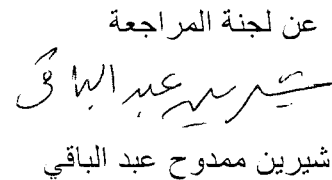 عن لجنة المراجعة
شيرين عبد الباقي
شيرين ممدوح عبد الباقي